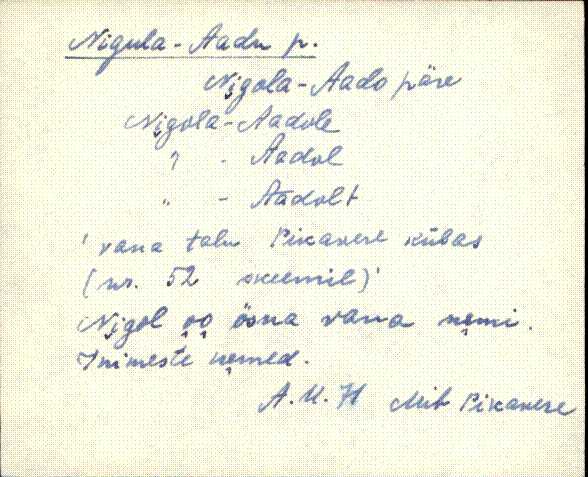 Nigula-Aadu p.
Nigola-Aado päre
Nigola-Aadole
" - Aadol
" - Aadolt
' vana talu Pikavere külas
(nr. 52 skeemil)'
Nigol o̬o̬ ösna vana ne̬mi.
Inimeste ne̬med.
Mih Pikavere